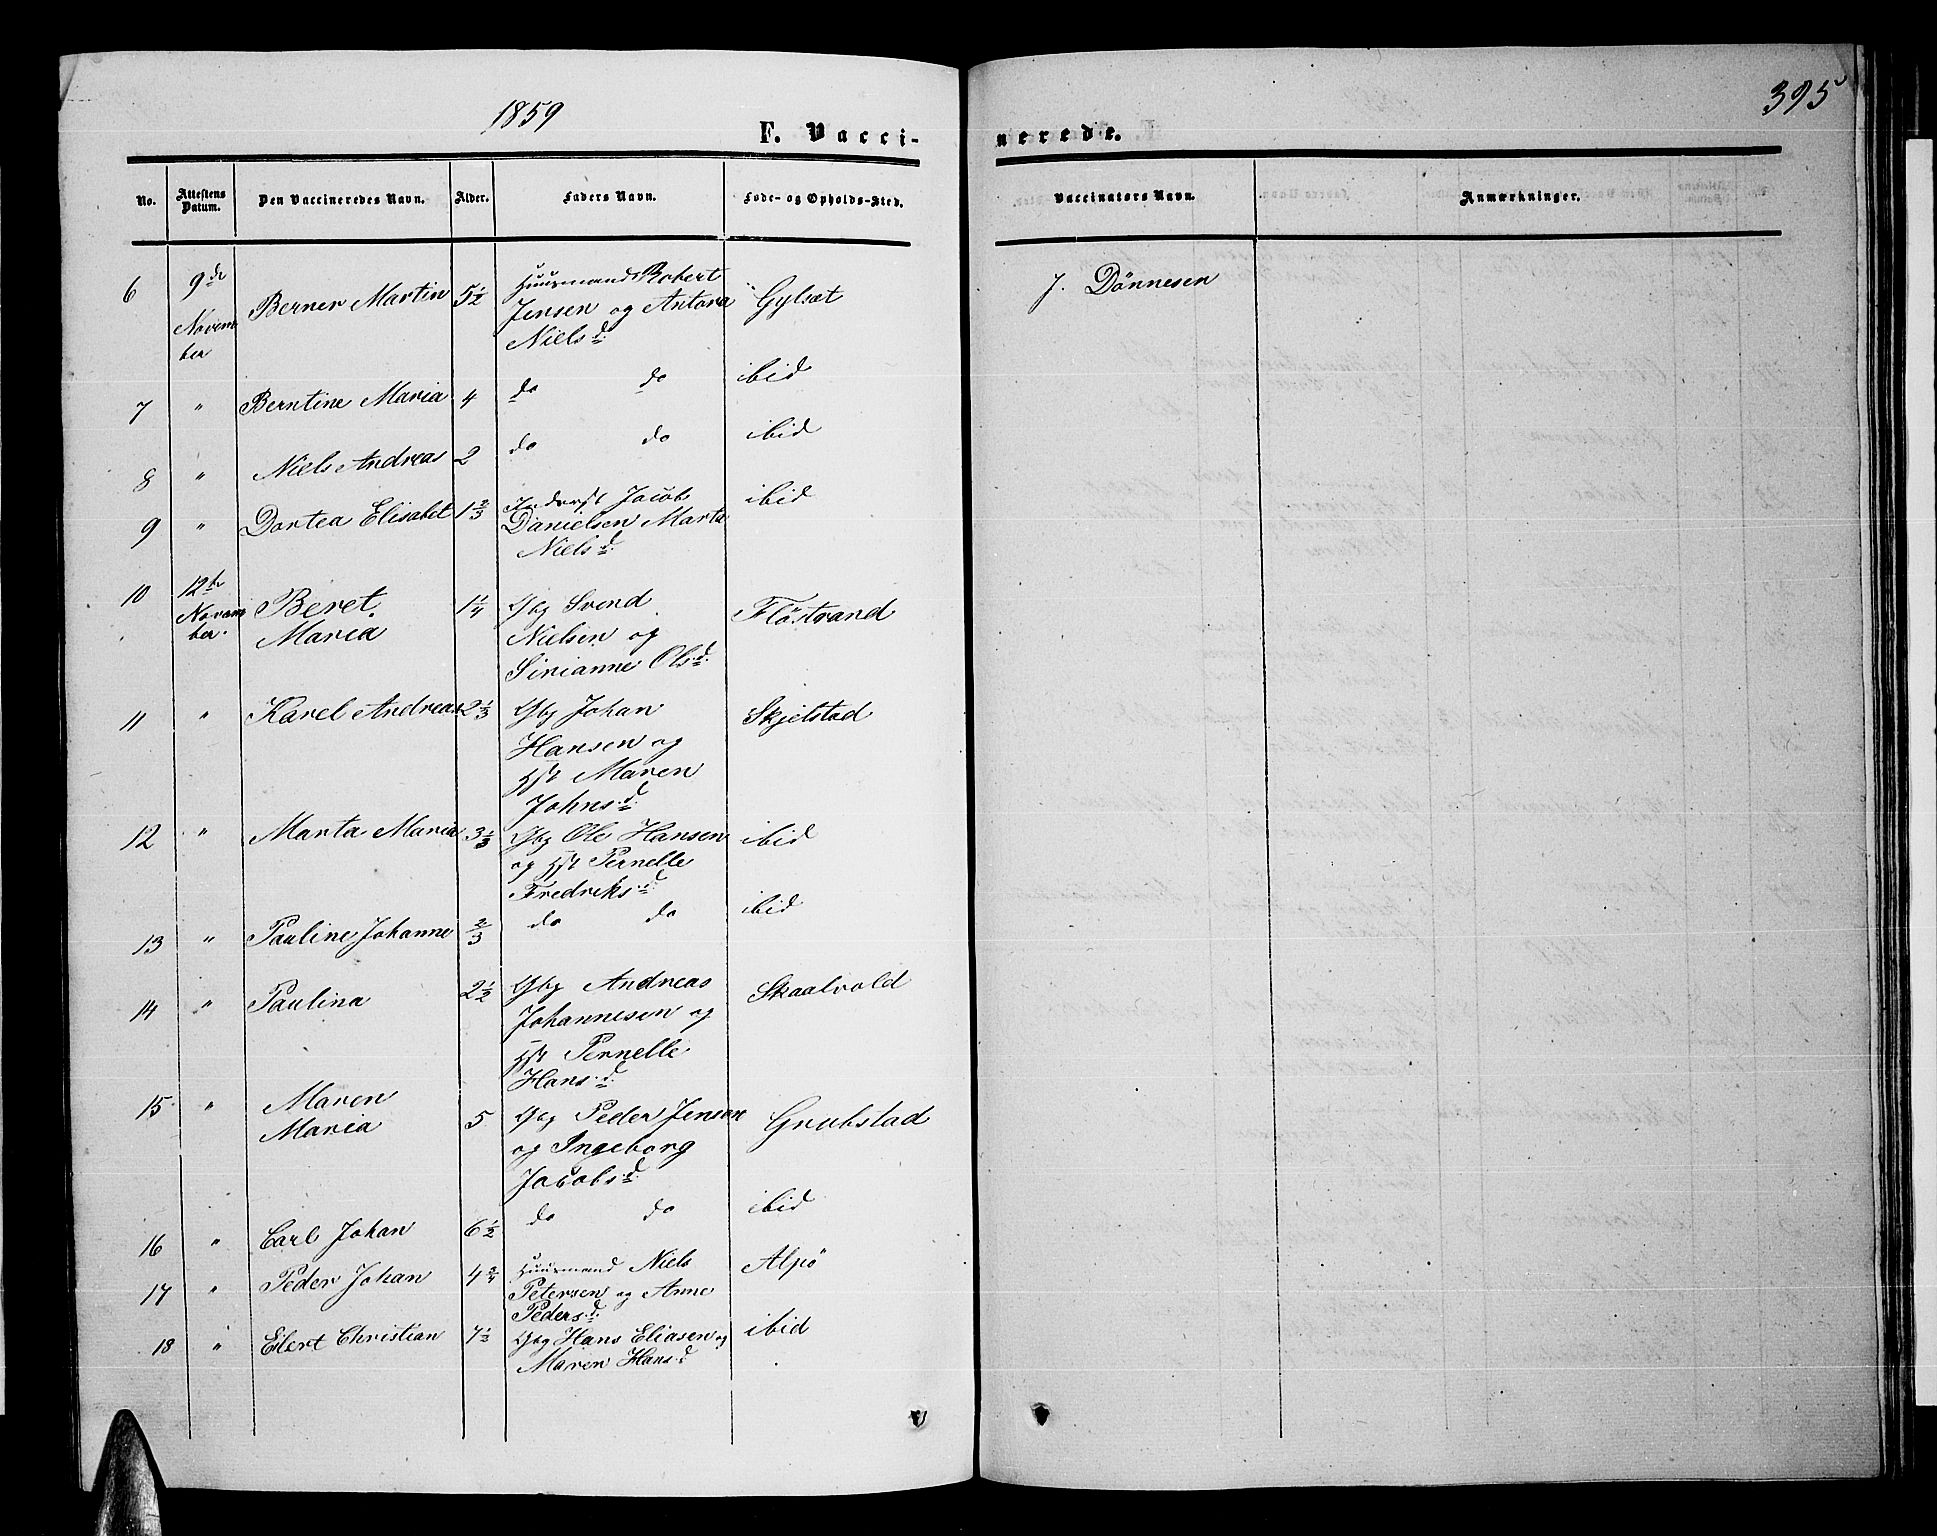 1859
395
F. Vacci-
nerede.
No.
Attestens Datum.
Den Vaccineredes Navn.
Alder.
Faders Navn.
Føde- og Opholds-Sted.
Vaccinatørs Navn.
Anmærkninger.
6 9de Berner Martin 5½ Huusmand Robert Gylsæt J. Dönnesen
Novem Jensen og Antora
ber Niels d:
7 " Berntine Maria 4 do do ibid
8 " Niels Andreas 2 do do ibid
9 " Dortea Elisabet 1⅔ Jacob ibid
Danielsen Marta
Niels d:
10 12te Beret 1¼ Gbg Svend Flöstrand
Novem Maria Nielsen og
ber. Sirianne Ols.d:
11 " Karel Andreas 2⅓ Gbg Johan Skjelstad
Hansen og
Hst Maren
Johns.d:
12 " Marta Maria 3⅓ Gbg Ole Hansen ibid
og Hst Pernelle
Fredriks.d:
13 " Pauline Johanne ⅔ do do ibid
14 " Paulina 2½ Gbg Andreas Skaalvold
Johannesen og
Hst Pernelle
Hans.d:
15 " Maren 5 Gbg Peder Jensen Grubstad
Maria og Ingeborg
Jacobs.d:
16 " Carl Johan 6½ do do ibid
17 " Peder Johan 4¾ Huusmand Niels Alpö
Petersen og Anne
Peders.d:
18 " Eilert Christian 7½ Gbg Hans Eliasen og ibid
Maren Hans.d